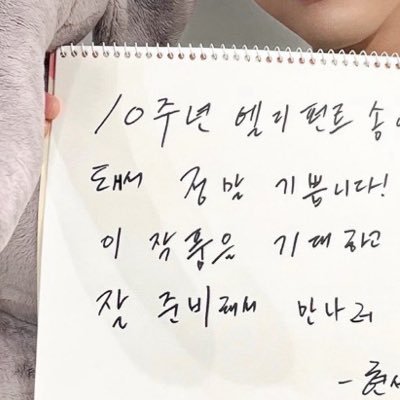 10주년 엘리펀트 송
돼서 정말 기쁩니다!
이 작품을 기대하고
잘 준비해서 만나러
- 현